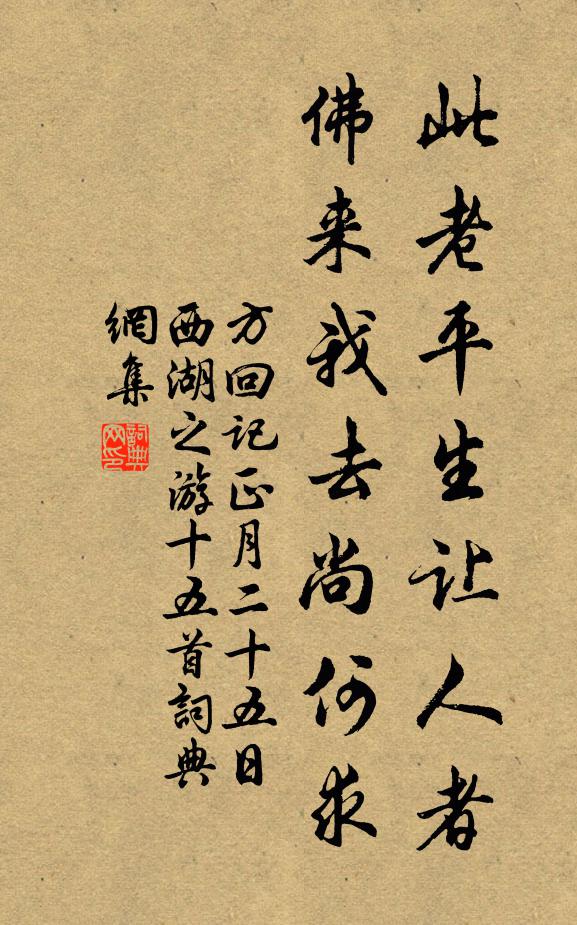 此老平生让人者
佛来我去尚何求
方回记正月二十五日
西湖之游十五首詞典
網集
詞典
网印